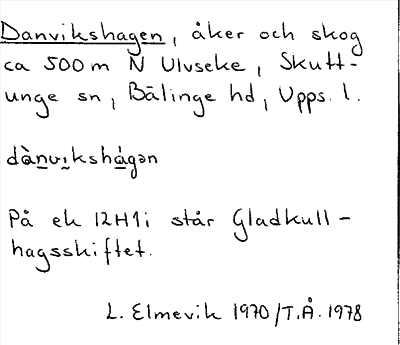 Danvikshagen, åker och skog
ca 500 m N Ulvseke, Skutt-
unge sn, Bälinge hd, Upps. l.
dànvikshágən
På ek 12H1i står Gladkull-
hagsskiftet.
L. Elmevik 1970/T.Å. 1978